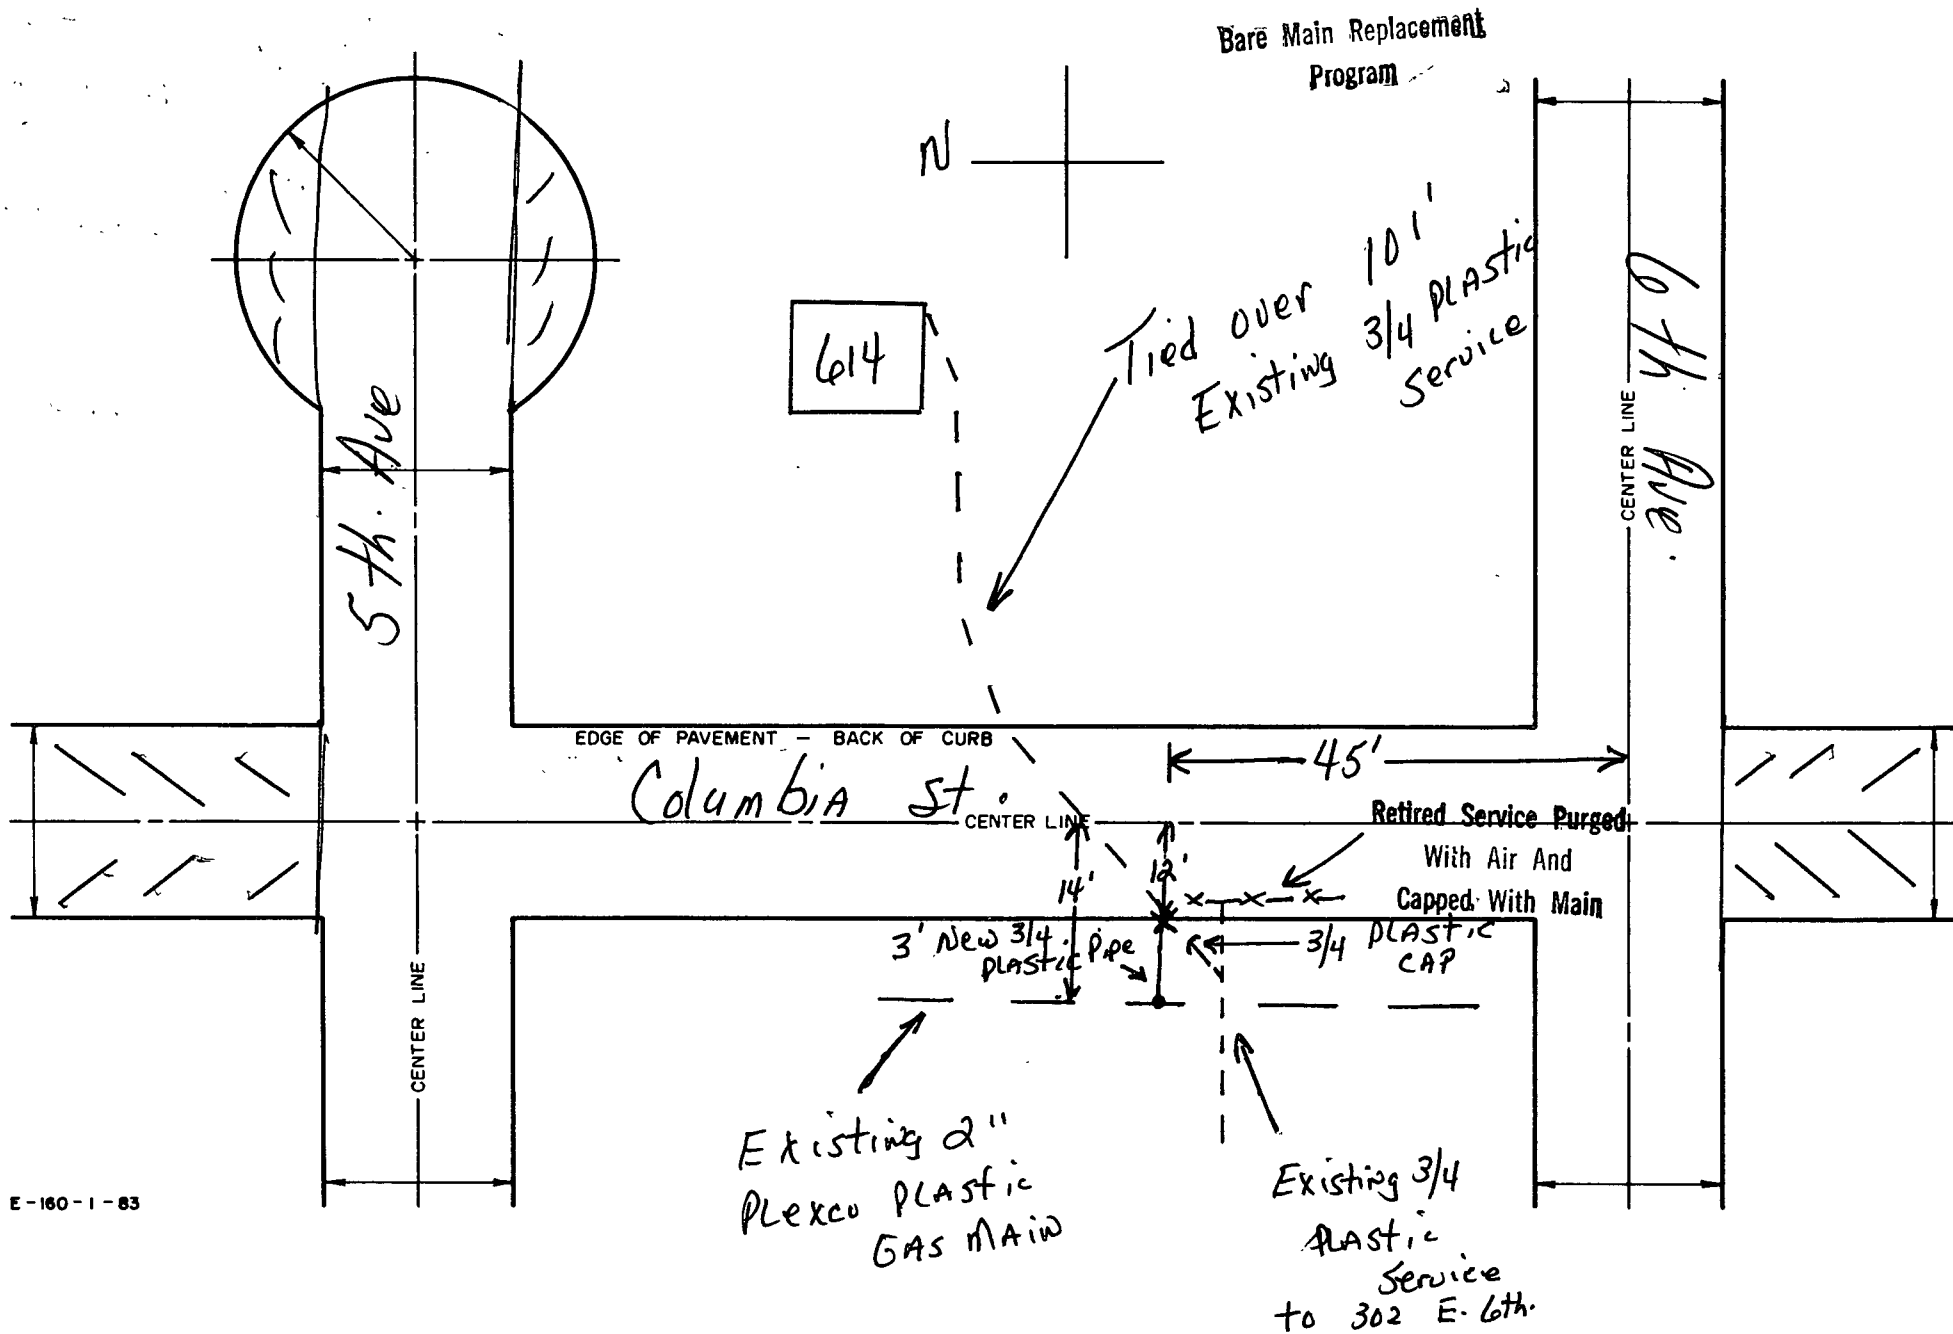 Bare Main Replacement
Program
N
Tied over 101'
Existing 3/4 PLAstic
Service
614
5th. Ave
6th Ave.
CENTER LINE
EDGE OF PAVEMENT - BACK OF CURB
Columbia St.
CENTER LINE
45'
Retired Service Purged
With Air And
Capped With Main
14'
12'
3' New 3/4
PLAStic Pipe
3/4 PLAStic
CAP
CENTER LINE
Existing 2"
PLexco PLAStic
GAS MAIN
Existing 3/4
PLAStic
Service
to 302 E. 6th.
E-160-1-83